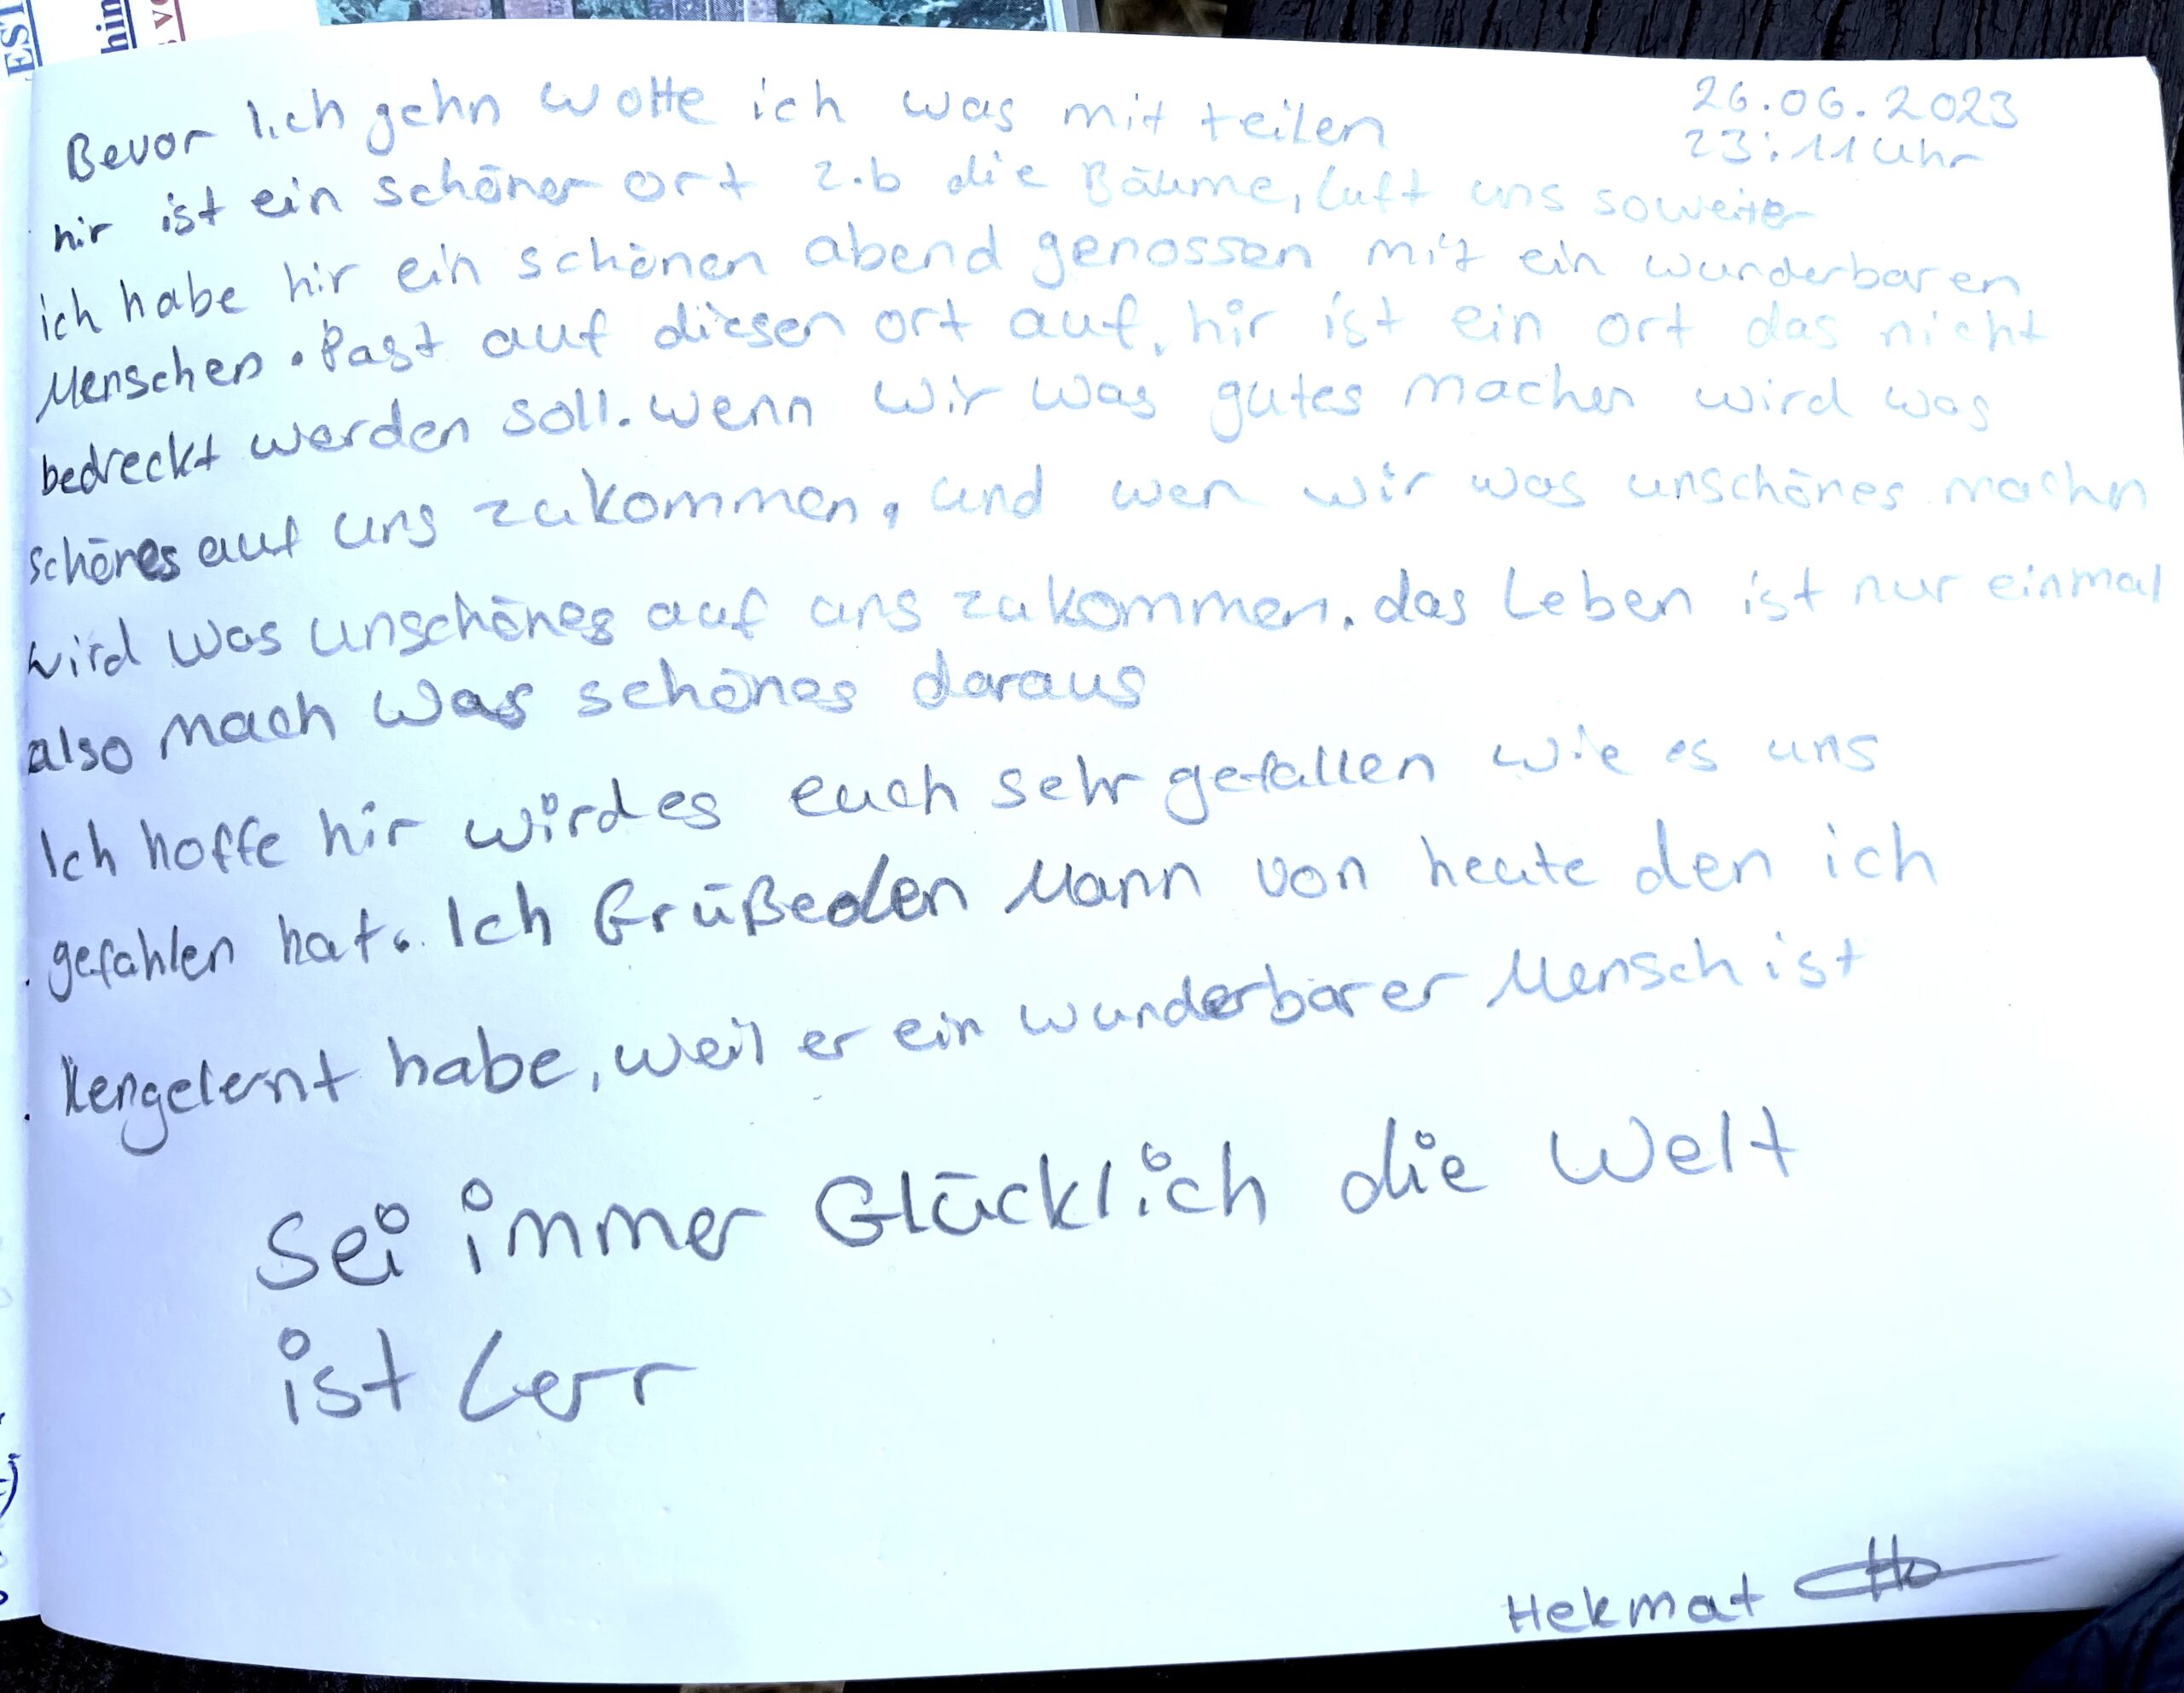 26.06.2023
23:11 Uhr
Bevor Ich gehn wolte ich was mit teilen
hir ist ein schöner ort z.b die Bäume, luft uns soweiter
ich habe hir ein schönen abend genossen mit ein wunderbaren
Menschen. Past auf diesen ort auf, hir ist ein ort das nicht
bedreckt werden soll. wenn wir was gutes machen wird was
schönes auf uns zukommen, und wen wir was unschönes machn
wird was unschönes auf uns zukommen. das Leben ist nur einmal
also mach was schönes daraus
Ich hoffe hir wird es euch sehr gefallen wie es uns
gefahlen hat. Ich Grüße den Mann von heute den ich
kengelernt habe, weil er ein wunderbarer Mensch ist
Sei immer Glücklich die Welt
ist Lerr
Hekmat